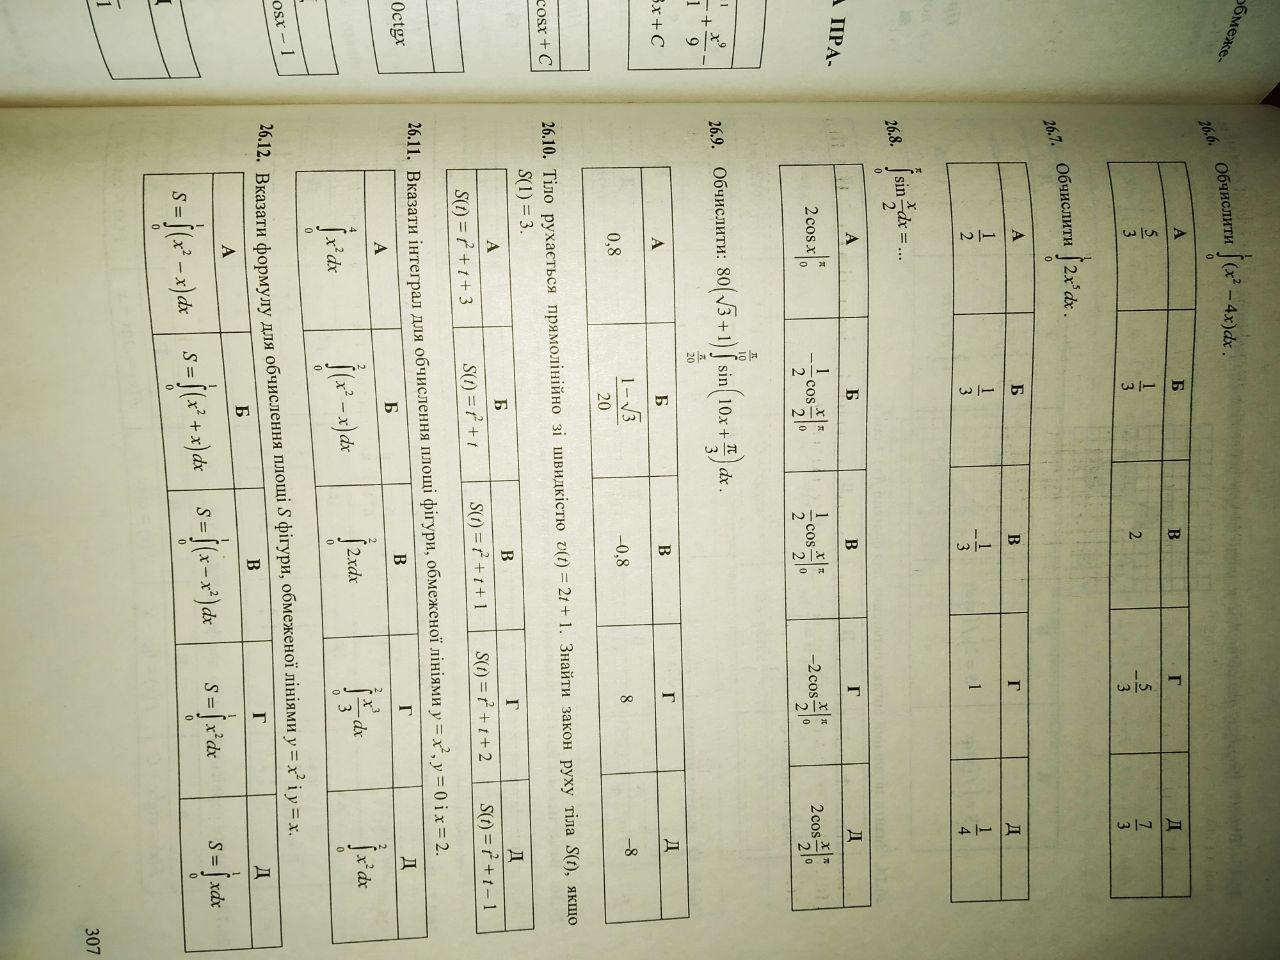 обмеже.
А ПРА-
+ x⁹/9 −
3x + C
cosx + C
0ctgx
osx − 1
26.6. Обчислити ∫₀¹(x² − 4x)dx.
А Б В Г Д
5/3 1/3 2 −5/3 7/3
26.7. Обчислити ∫₀¹2x⁵dx.
А Б В Г Д
1/2 1/3 −1/3 1 1/4
26.8. ∫₀^π sin x/2 dx = ...
А Б В Г Д
2cosx|₀^π −1/2 cos x/2|₀^π 1/2 cos x/2|₀^π −2cos x/2|₀^π 2cos x/2|₀^π
26.9. Обчислити: 80(√3 + 1) ∫_{π/20}^{π/10} sin(10x + π/3)dx.
А Б В Г Д
0,8 (1−√3)/20 −0,8 8 −8
26.10. Тіло рухається прямолінійно зі швидкістю v(t) = 2t + 1. Знайти закон руху тіла S(t), якщо
S(1) = 3.
А Б В Г Д
S(t) = t² + t + 3 S(t) = t² + t S(t) = t² + t + 1 S(t) = t² + t + 2 S(t) = t² + t − 1
26.11. Вказати інтеграл для обчислення площі фігури, обмеженої лініями y = x², y = 0 і x = 2.
А Б В Г Д
∫₀⁴x²dx ∫₀²(x² − x)dx ∫₀²2xdx ∫₀² x³/3 dx ∫₀²x²dx
26.12. Вказати формулу для обчислення площі S фігури, обмеженої лініями y = x² і y = x.
А Б В Г Д
S = ∫₀¹(x² − x)dx S = ∫₀¹(x² + x)dx S = ∫₀¹(x − x²)dx S = ∫₀¹x²dx S = ∫₀¹xdx
307